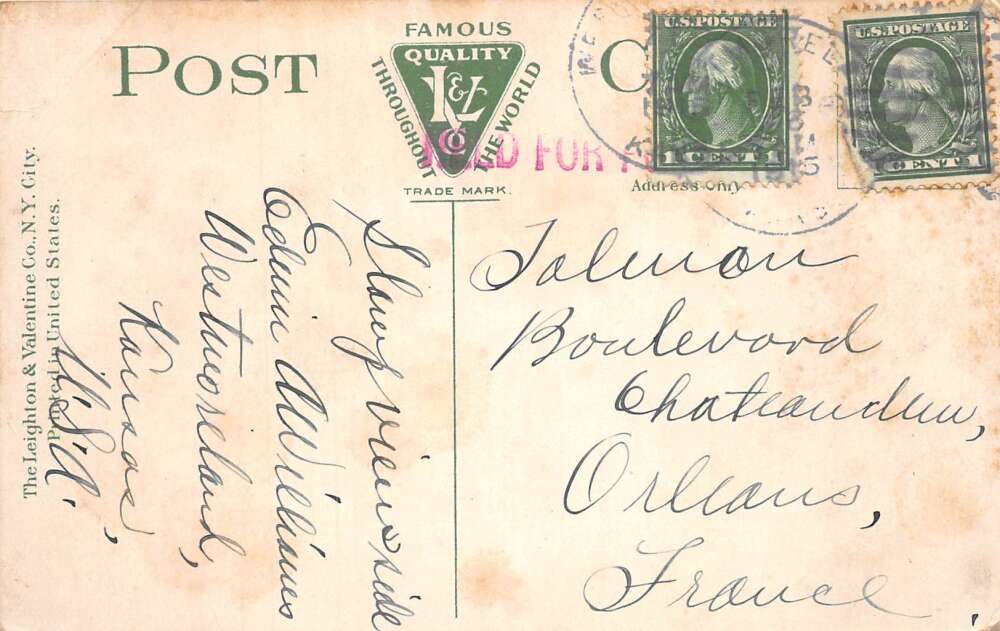 POST C
FAMOUS
QUALITY
THROUGHOUT THE WORLD
L & V
CO
TRADE MARK.
FOR
Address Only
U.S. POSTAGE
1 CENT 1
U.S. POSTAGE
CENT 1
1915
The Leighton & Valentine Co., N.Y. City.
Printed in United States.
Stamp view side
Edwin A Williams
Westmoreland,
Kansas,
U.S.A.
Salmon
Boulevard
Chateaudun,
Orleans,
France